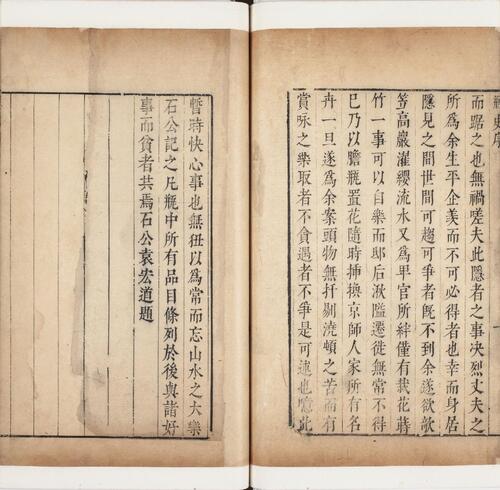 瓶史序
而踞之也無禍嗟夫此隱者之事決烈丈夫之
所為余生平企羨而不可必得者也幸而身居
隱見之間世間可趨可爭者既不到余遂欲欹
笠高巖濯纓流水又為卑官所絆僅有栽花蒔
竹一事可以自樂而邸居湫隘遷徙無常不得
巳乃以膽瓶置花隨時插換京師人家所有名
卉一旦遂為余案頭物無扞剔澆頓之苦而有
賞咏之樂取者不貪遇者不爭是可述也噫此
暫時快心事也無狃以為常而忘山水之大樂
石公記之凡瓶中所有品目條列於後與諸好
事而貧者共焉石公袁宏道題